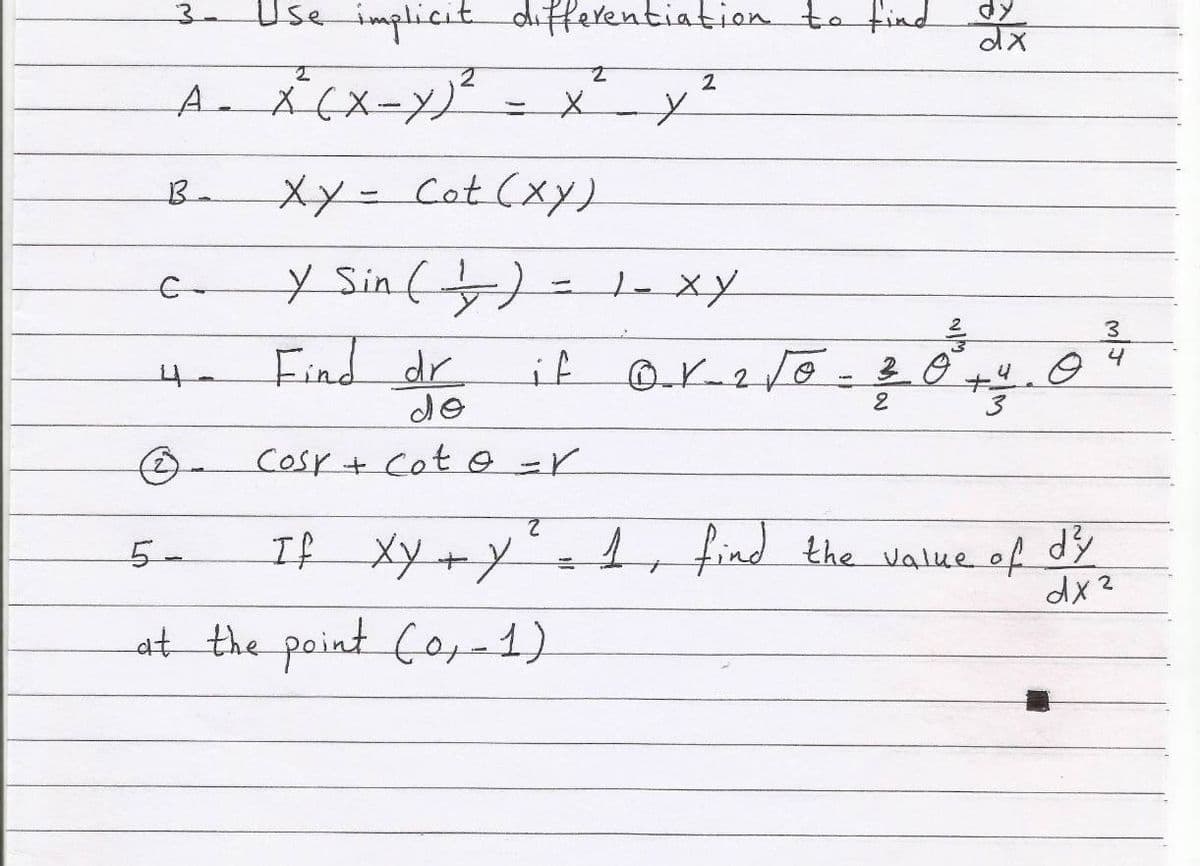 3- Use implicit differentiation to find dy/dx
A- x²(x-y)² = x² - y²
B- xy = Cot (xy)
C- y Sin (1/y) = 1- xy
4- Find dr/dθ if ①-r-2√θ = 3/2 θ^(2/3) + 4/3 . θ^(3/4)
②- Cosr + Cot θ = r
5- If xy + y² = 1, find the value of d²y/dx²
at the point (0,-1)